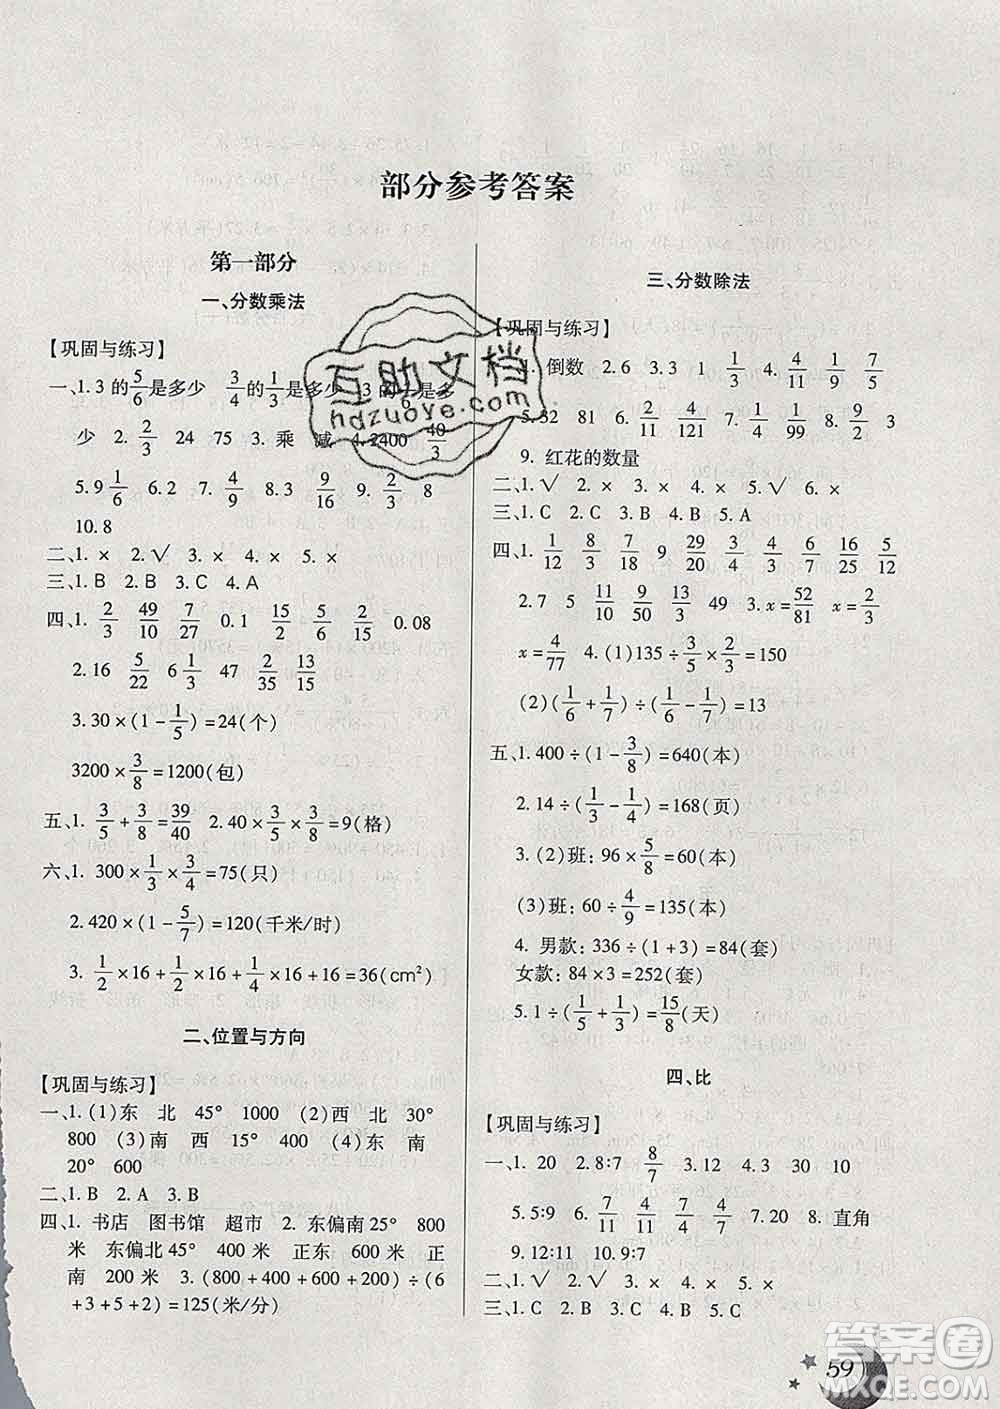 部分参考答案
第一部分
一、分数乘法
【巩固与练习】
一、1.3 的5/6是多少 3/4的1/3是多少 3 的 是多
少 2. 2/3 24 75 3. 乘 减 4.2400 40/3
5.9 1/6 6.2 7. 4/9 8. 9/16 9. 2/3 8
10.8
二、1. × 2.√ 3. × 4. × 5. ×
三、1.B 2.B 3.C 4.A
四、1. 2/3 49/10 7/27 0.1 15/2 2/5 2/15 0.08
2.16 5/22 6 1/3 47 2/35 13/15
3.30×(1-1/5)=24(个)
3200×3/8=1200(包)
五、1. 3/5+3/8=39/40 2.40×3/5×3/8=9(格)
六、1. 300×1/3×3/4=75(只)
2.420×(1-5/7)=120(千米/时)
3. 1/2×16+1/2×16+1/4×16+16=36(cm²)
二、位置与方向
【巩固与练习】
一、1.(1)东 北 45° 1000 (2)西 北 30°
800 (3)南 西 15° 400 (4)东 南
20° 600
二、1.B 2.A 3.B
四、1. 书店 图书馆 超市 2. 东偏南25° 800
米 东偏北45° 400 米 正东 600 米 正
南 200 米 3.(800+400+600+200)÷(6
+3+5+2)=125(米/分)
三、分数除法
【巩固与练习】
倒数 2.6 3.3 1 1/3 4. 4/11 7/8
5.32 81 6. 2/11 4/121 7. 1/4 1/99 8. 9/2 3
9. 红花的数量
二、1.√ 2. × 3. × 4. × 5.√ 6. ×
三、1.C 2.C 3.B 4.B 5.A
四、1. 1/12 8/3 7/8 9 20/9 4/3 6/4 16/25 5/12
2.7 5 11/10 9/50 13/30 49 3.x=52/81 x=2/3
x=4/77 4.(1)135÷3/5×2/3=150
(2)(1/6+1/7)÷(1/6-1/7)=13
五、1.400÷(1-3/8)=640(本)
2.14÷(1/3-1/4)=168(页)
3.(2)班：96×5/8=60(本)
(3)班：60÷4/9=135(本)
4. 男款：336÷(1+3)=84(套)
女款：84×3=252(套)
5.1÷(1/5+1/3)=15/8(天)
四、比
【巩固与练习】
一、1. 20 2.8∶7 8/7 3.12 4.3 30 10
5.5∶9 6. 7/11 4/11 7/4 4/7 7.20 8. 直角
9.12∶11 10.9∶7
二、1.√ 2.√ 3. × 4. × 5. ×
三、1.C 2.C 3.B 4.C 5.C
59
互助文档
hdzuoye.com
答案圈
MXQE.COM